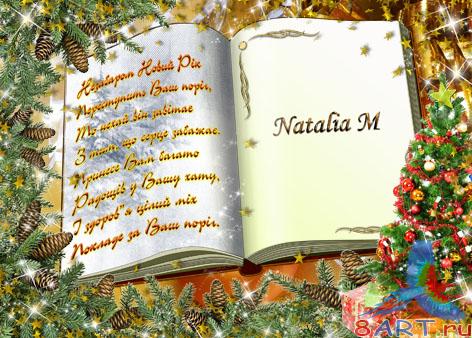 Незабаром Новий Рік
Переступить Ваш поріг,
То нехай він завітає
З тим, що серце забажає.
Принесе Вам багато
Радощів у Вашу хату,
І здоров'я цілий міх
Покладе за Ваш поріг.
Natalia M
8ART.ru